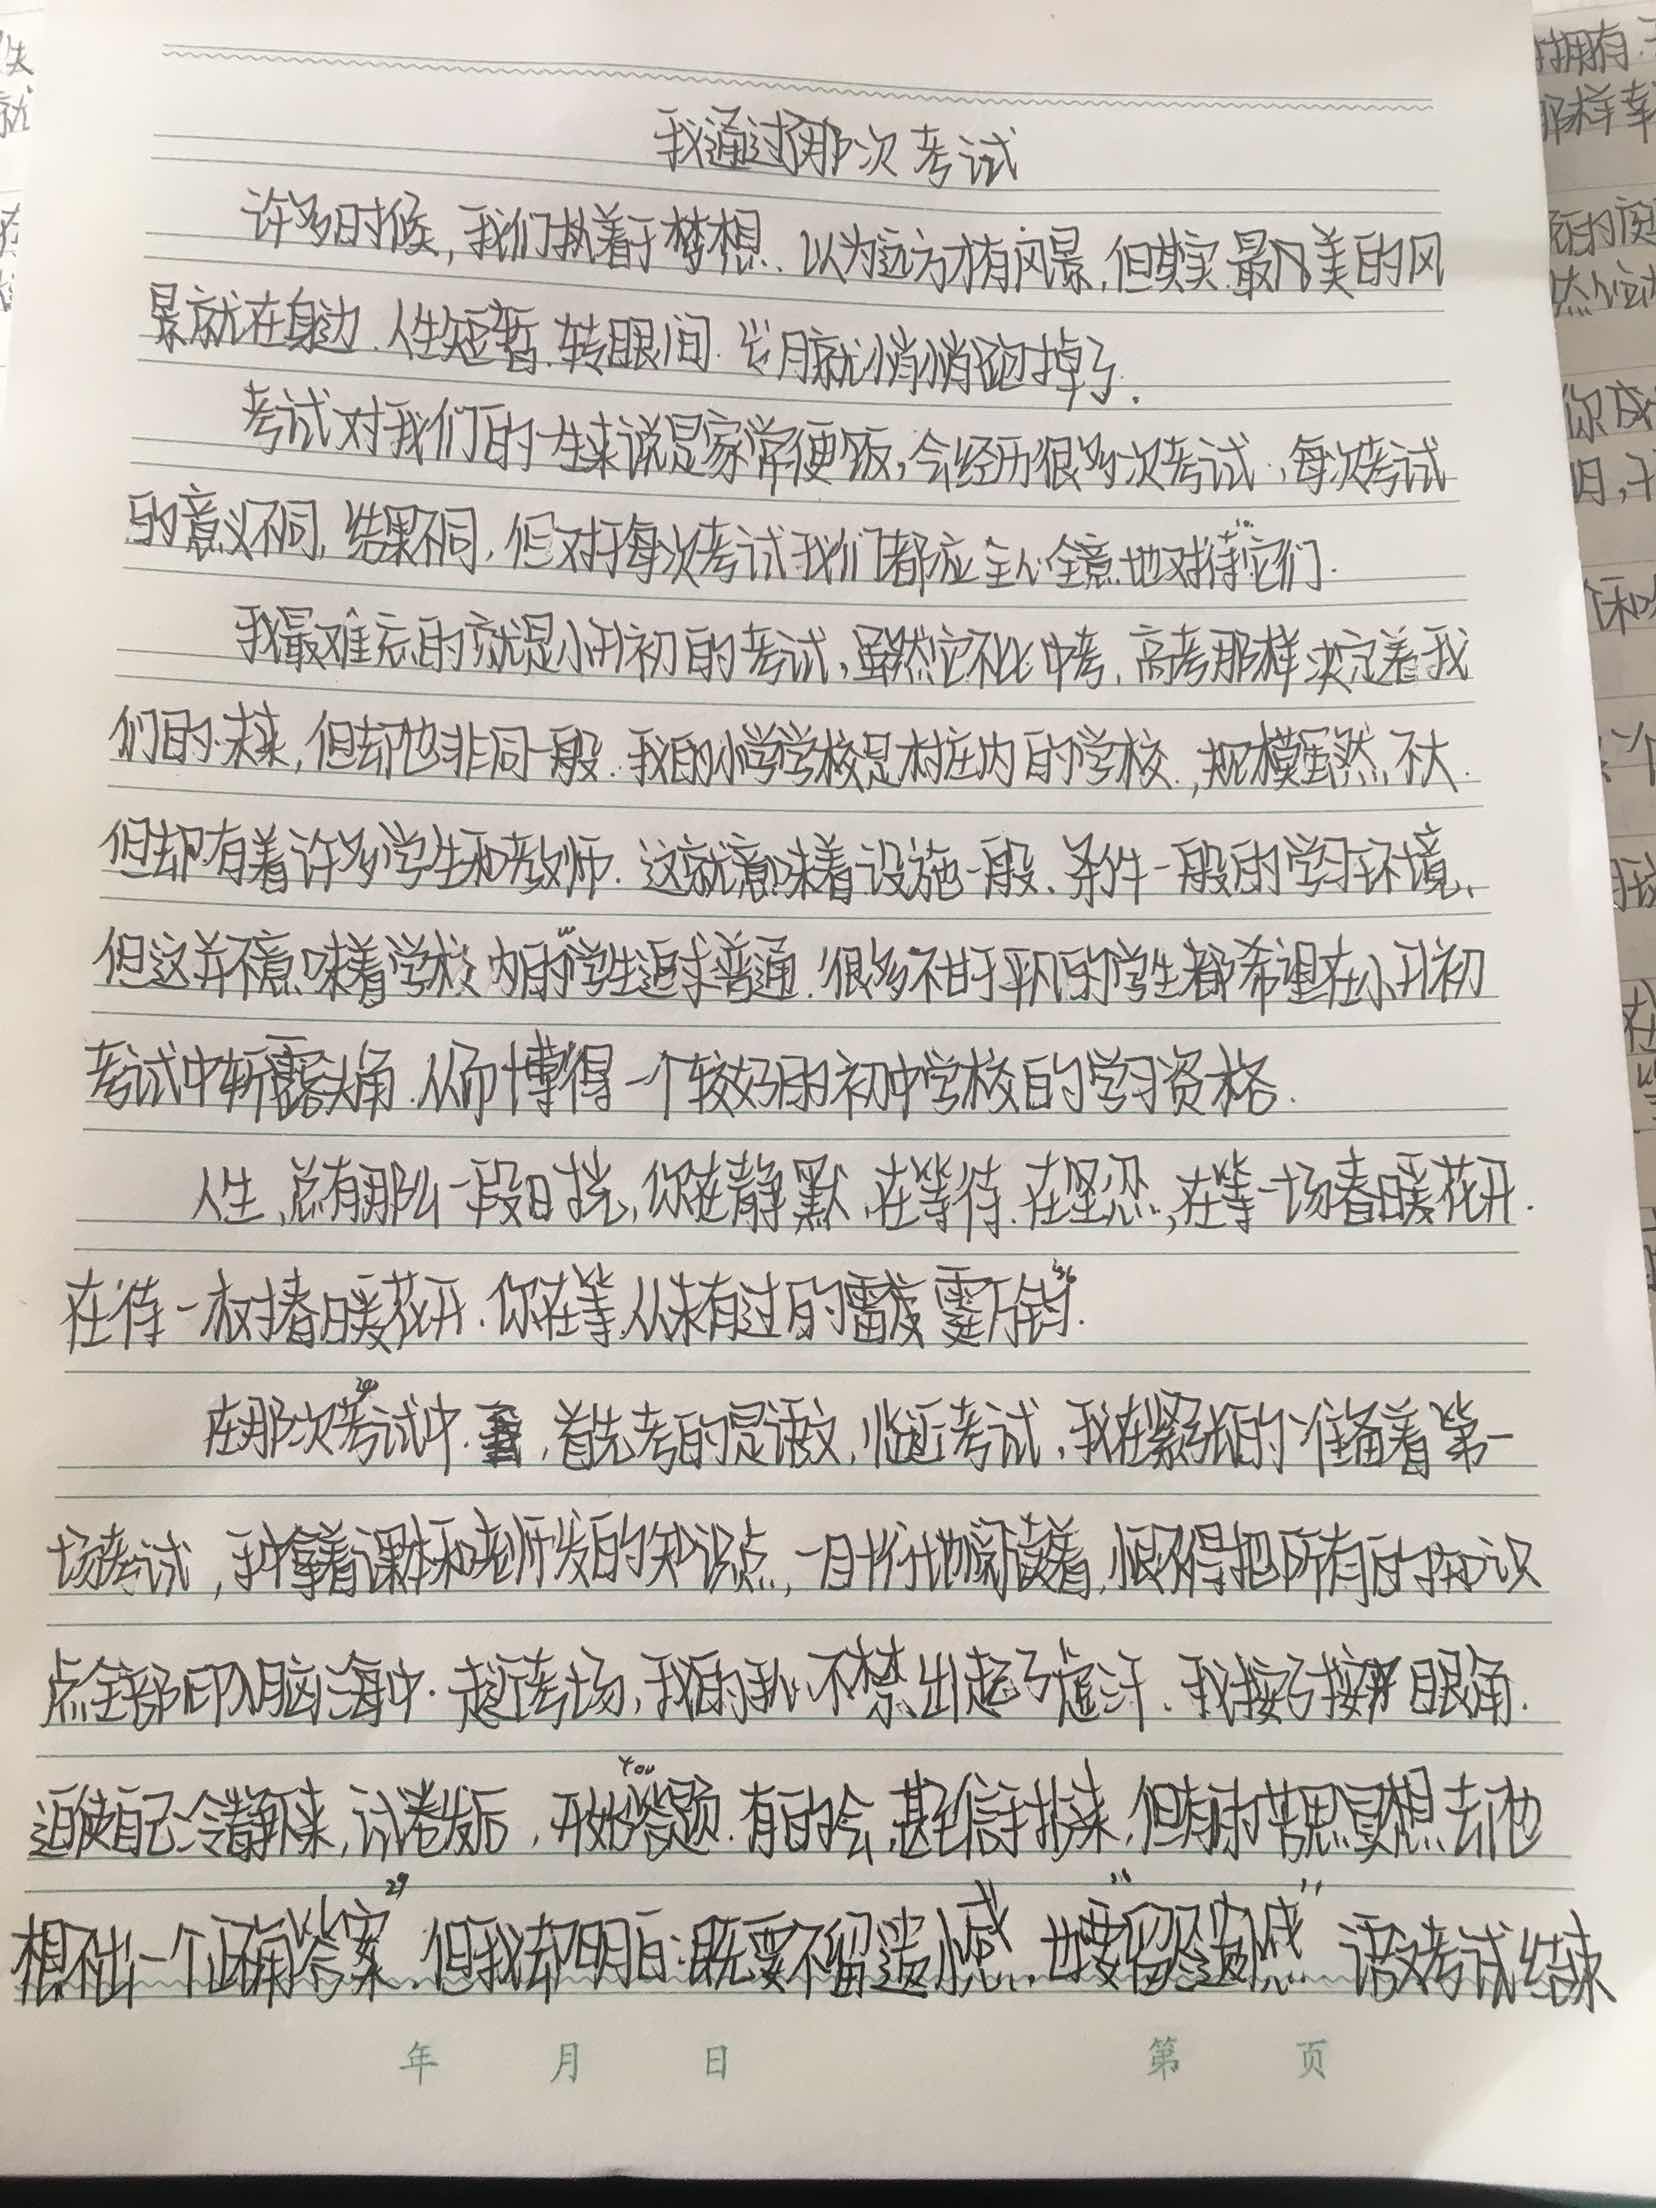 我通过了那次考试
许多时候,我们执着于梦想.以为远方才有风景,但其实最美的风
景就在身边.人生短暂.转眼间.岁月就悄悄跑掉了.
考试对我们的一生来说是家常便饭,会经历很多次考试,每次考试
的意义不同,结果不同,但对于每次考试我们都应全心全意地对待它们.
我最难忘的就是小升初的考试,虽然它不比中考,高考那样决定着我
们的未来,但却也非同一般.我的小学学校是村庄内的学校,规模虽然不大.
但却有着许多学生和教师.这就意味着设施一般、条件一般的学习环境、
但这并不意味着学校内的学生追求普通.很多不甘于平凡的学生都希望在小升初
考试中崭露头角.从而博得一个较好的初中学校的学习资格.
人生,总有那么一段日光,你在静默、在等待.在坚忍,在等一场春暖花开.
在待一树春暖花开.你在等从未有过的雷霆万钧.
在那次考试中,首先考的是语文,临近考试,我在紧张的准备着第一
场考试,手拿着课本和老师发的知识点,一目十行地阅读着,恨不得把所有的知识
点全部印入脑海中.走进考场,我的手心不禁出起了虚汗.我按了按眼角.
迫使自己冷静下来,试卷发后,开始答题.有的会,甚至信手拈来,但有的苦思冥想去也
想不出一个正确答案.但我却明白:既要不留遗憾,也要留"遗憾"语文考试结束
年 月 日 第 页